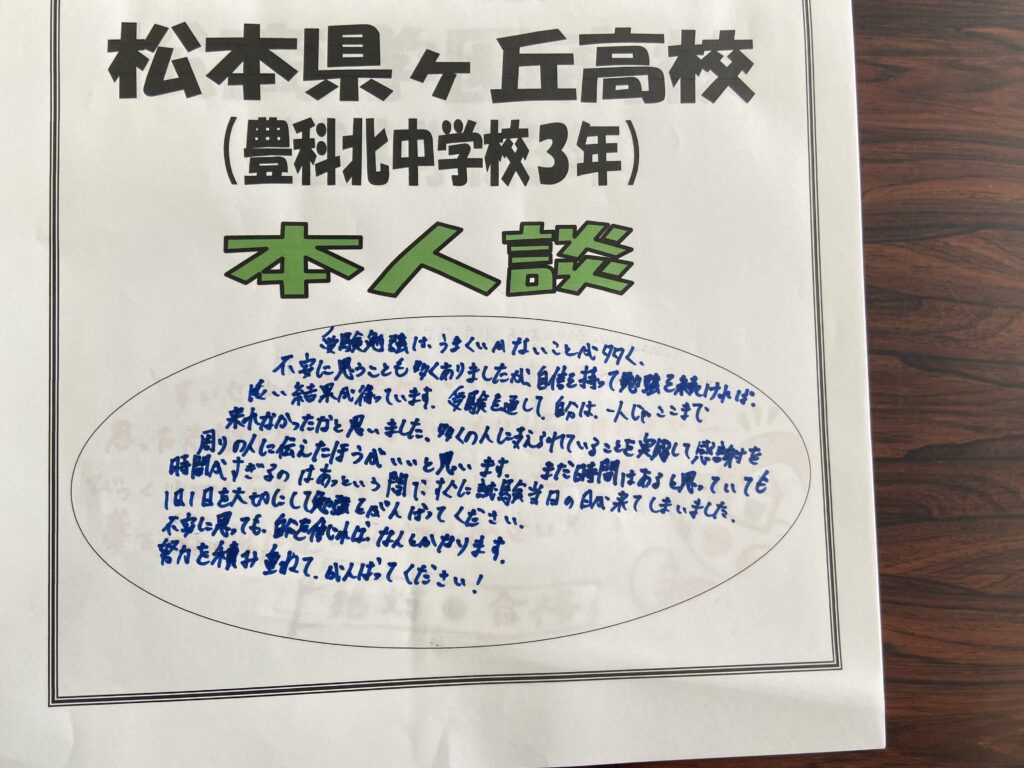 松本県ヶ丘高校
(豊科北中学校3年)
本人談
受験勉強は、うまくいかないことが多く、
不安に思うことも多くありましたが、自信を持って勉強を続ければ、
良い結果が待っています。受験を通して、自分は、一人じゃここまで
来れなかったなと思いました。多くの人に支えられていることを実感して感謝を
周りの人に伝えたほうがいいと思います。まだ時間はあると思っていても
時間がすぎるのはあっという間で、すぐに試験当日の日が来てしまいました。
1日1日を大切にして勉強をがんばってください。
不安に思っても、自分を信じればなんとかなります。
努力を積み重ねて、がんばってください!